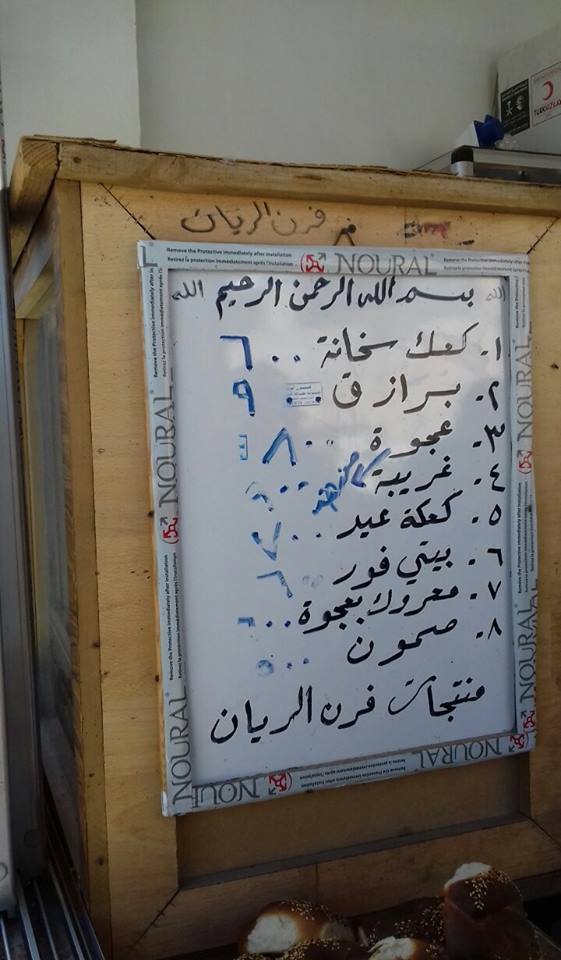 فرن الريان
Remove the Protective immediately after installation
Retirez la protection immédiatement après l'installation
NOURAL
الله بسم الله الرحمن الرحيم الله
١. كعك سخانة ٦٠٠
٢. برازق ٩
٣. عجوة ٨٠٠
٤. غريبة
٥. كعكة عيد ٧٠٠
٦. بيتي فور ٦
٧. معروك بعجوة ٦٠٠
٨. صمون ٥٠٠
منتجات فرن الريان
NOURAL
NOURAL
NOURAL
NOURAL
NOURAL